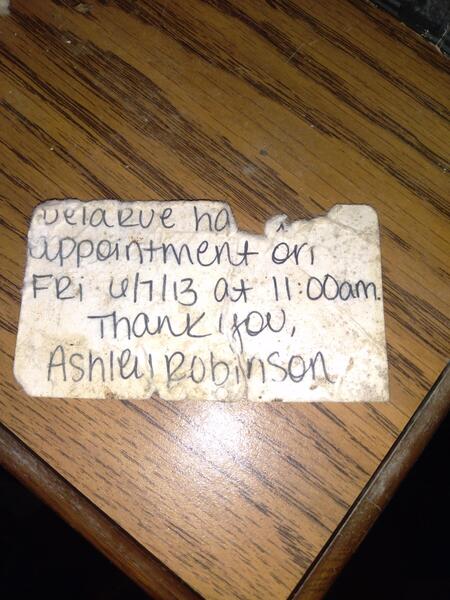 Delarue ha
appointment on
FRi 6/7/13 at 11:00am.
Thank you,
Ashley Robinson